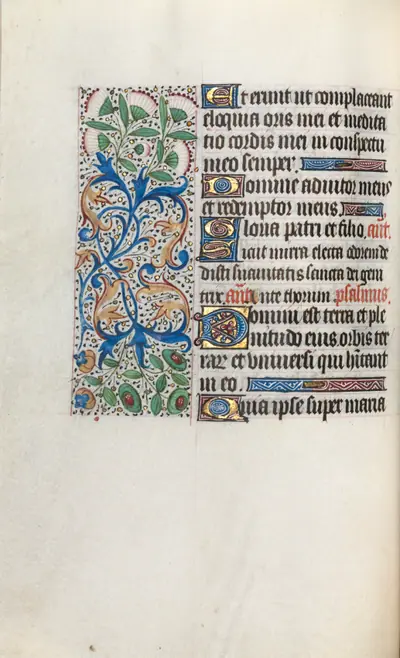 Et erunt ut complaceant
eloquia oris mei et medita
tio cordis mei in conspectu
meo semper.
Domine adiutor meus
et redemptor meus.
Gloria patri et filio, ant.
Sicut mirra electa odorem de
disti suavitatis sancta dei geni
trix. ante thorum psalmus.
Domini est terra et ple
nitudo eius orbis ter
rarz et universi qui hitant
in eo.
Quia ipse super maria